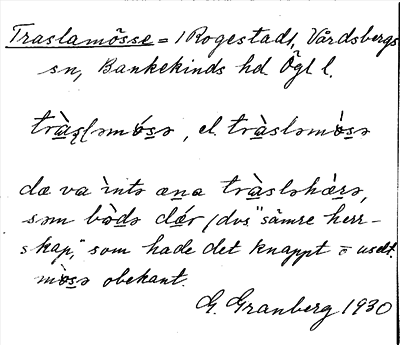 Traslamösse = / Rogestads, Vårdsbergs
sn, Bankekinds hd Ögl l.
tràsləmósə, el. tràsləmòsə
dæ va ìntə æna tràsləhærə,
səm bòdə dǽr (dvs "sämre herr-
skap," som hade det knappt = uselt.
mòsə obekant.
G. Granberg 1930